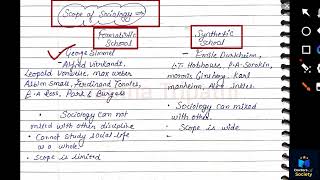 Scope of Sociology ⇒
Formalistic School
Synthetic School
- George Simmel
- Alfred Vinkandt,
Leopold Vonwise, max weber
Albion Small, Ferdinand Tonnies,
E.A Ross, Park & Burgess
- Emile Durkheim,
L.T. Hobhouse, P.A. Sorokin,
morris Ginsberg, Karl
manheim, Alex Inkles.
• Sociology can not mixed with other discipline
• Cannot study social life as a whole
• Scope is limited
• Sociology can mixed with other.
• Scope is wide
Doctors of Society